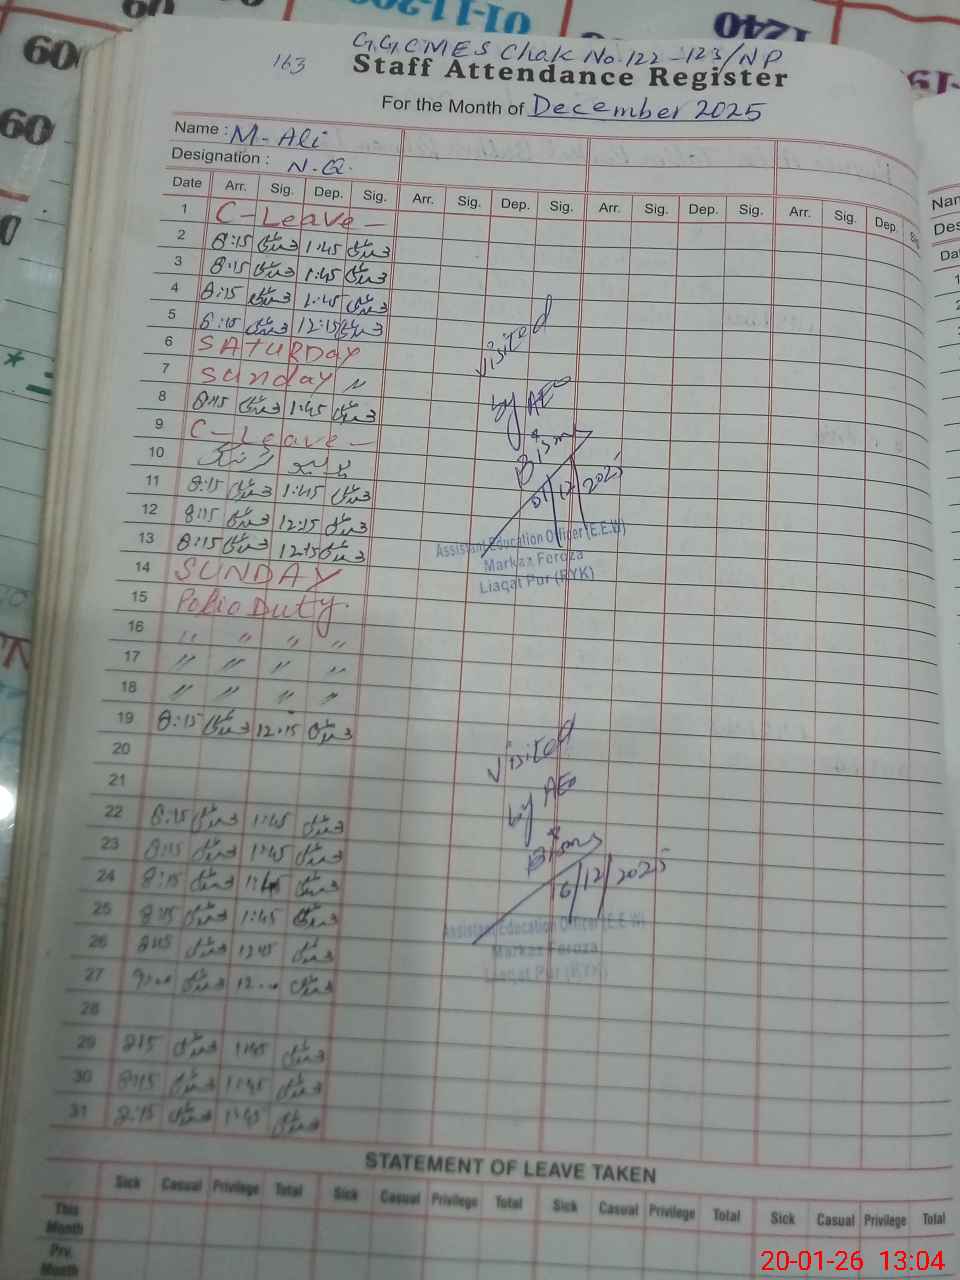 163
G.G.CMES Chak No.122-123/NP
Staff Attendance Register
For the Month of December 2025
Name : M-Ali
Designation : N.Q.
Date Arr. Sig. Dep. Sig. Arr. Sig. Dep. Sig. Arr. Sig. Dep. Sig. Arr. Sig. Dep. Sig.
1 C-Leave-
2 8:15 محمد علی 1:45 محمد علی
3 8:15 محمد علی 1:45 محمد علی
4 8:15 محمد علی 1:45 محمد علی
5 8:15 محمد علی 12:15 محمد علی
6 SATURDAY
7 Sunday "
8 8:15 محمد علی 1:45 محمد علی
9 C-Leave-
10 پولیو ٹریننگ
11 8:15 محمد علی 1:45 محمد علی
12 8:15 محمد علی 12:15 محمد علی
13 8:15 محمد علی 12:15 محمد علی
14 SUNDAY
15 Polio Duty.
16 " " " "
17 " " " "
18 " " " "
19 8:15 محمد علی 12:15 محمد علی
20
21
22 8:15 محمد علی 1:45 محمد علی
23 8:15 محمد علی 1:45 محمد علی
24 8:15 محمد علی 1:45 محمد علی
25 8:15 محمد علی 1:45 محمد علی
26 8:15 محمد علی 12:45 محمد علی
27 9:00 محمد علی 12:00 محمد علی
28
29 8:15 محمد علی 1:45 محمد علی
30 8:15 محمد علی 1:45 محمد علی
31 8:15 محمد علی 1:45 محمد علی
Visited
by AEO
01/12/2025
Assistant Education Officer (E.E.W)
Markaz Feroza
Liaqat Pur (RYK)
Visited
by AEO
16/12/2025
Assistant Education Officer (E.E.W)
Markaz Feroza
Liaqat Pur (RYK)
STATEMENT OF LEAVE TAKEN
Sick Casual Privilege Total Sick Casual Privilege Total Sick Casual Privilege Total Sick Casual Privilege Total
This Month
Prv. Month
20-01-26 13:04